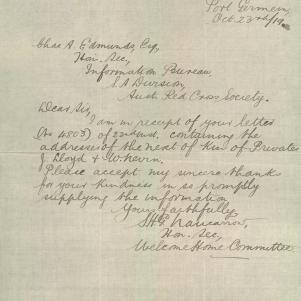 Port Germein,
Oct. 23rd/19
Chas A. Edmunds Esq,
Hon. Sec,
Information Bureau
S.A Division,
Aust Red Cross Society.
Dear Sir,
I am in receipt of your letter
(No 4803) of 22nd inst. containing the
addresses of the next of kin of Privates
J. Lloyd & W. Nevin.
Please accept my sincere thanks
for your kindness in so promptly
supplying the information
Yours faithfully,
Hon. Sec,
Welcome Home Committee